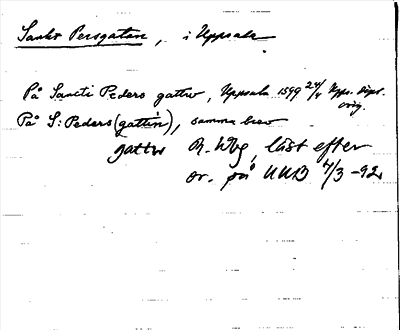 Sankt Persgatan, i Uppsala
På Sancti Peders gattw, Uppsala 1599 24/4 Upps. dipl. orig.
På S: Peders (gattin), samma brev
gattw R. Wbg, läst efter
or. på UUB 4/3 -92